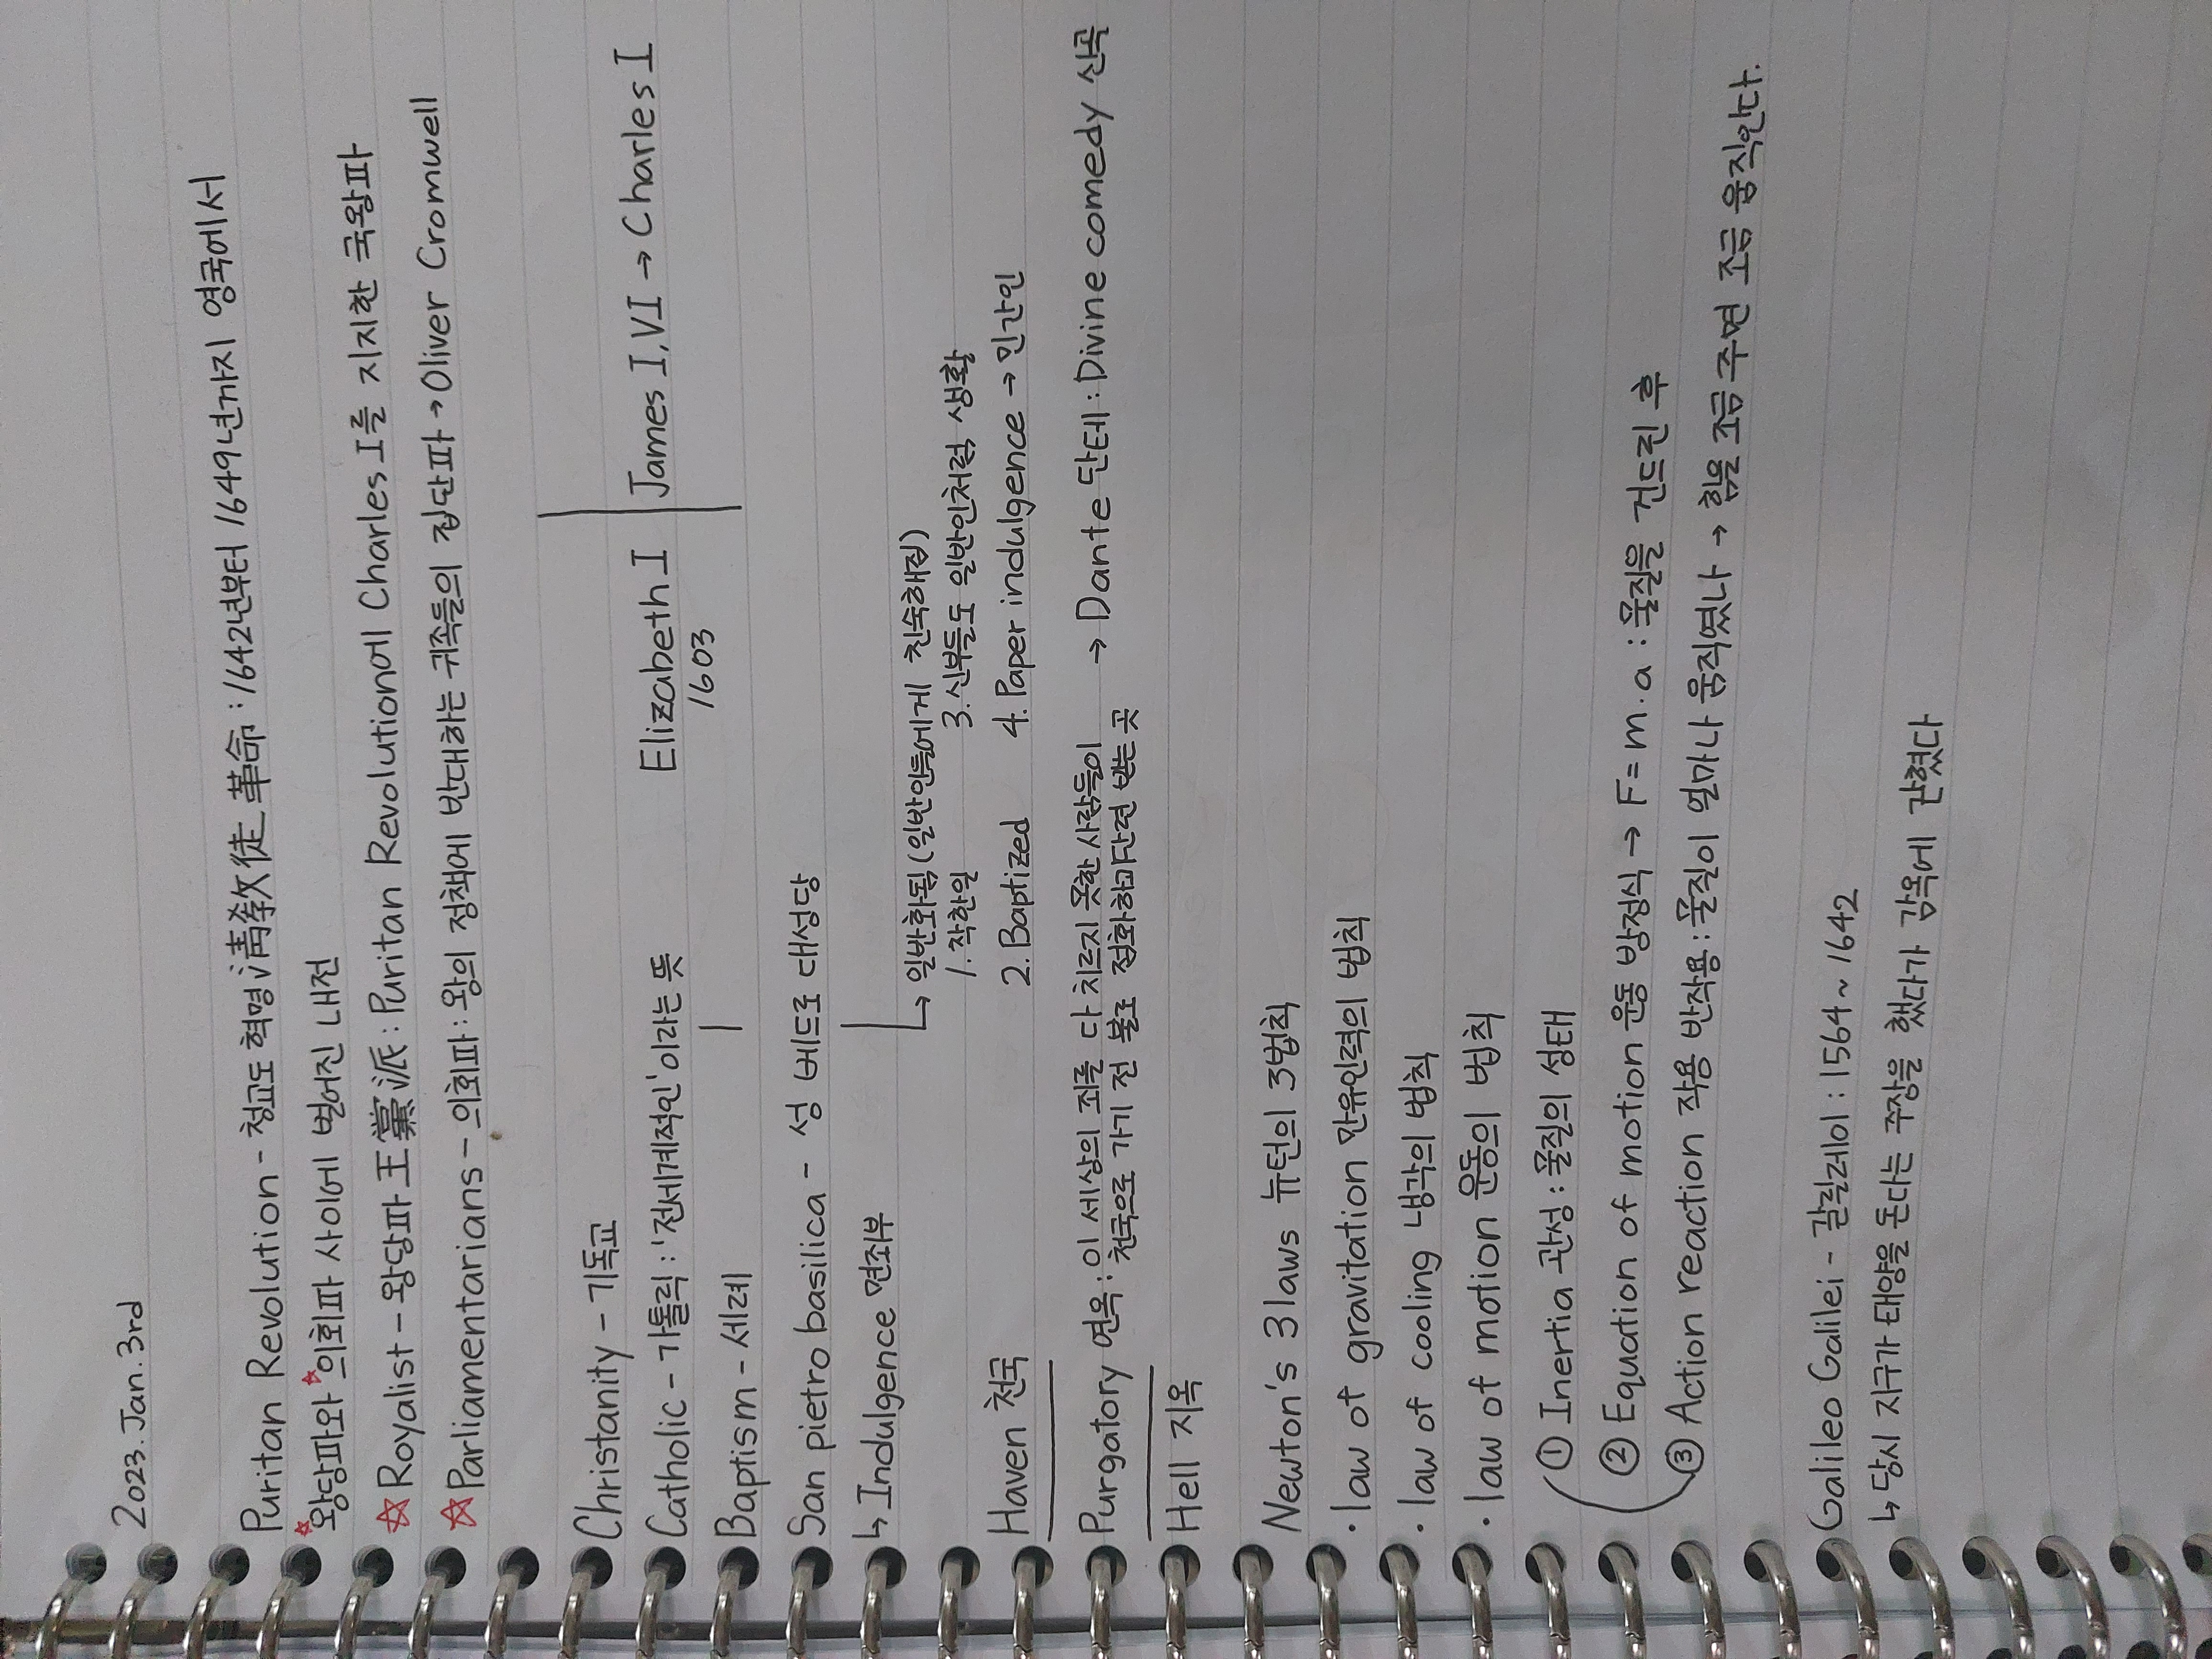 2023. Jan. 3rd
Puritan Revolution - 청교도 혁명 淸敎徒 革命 : 1642년부터 1649년까지 영국에서
☆왕당파와 ☆의회파 사이에 벌어진 내전
☆ Royalist - 왕당파 王黨派 : Puritan Revolution에 Charles I를 지지한 국왕파
☆ Parliamentarians - 의회파 : 왕의 정책에 반대하는 귀족들의 집단파 → Oliver Cromwell
Christanity - 기독교
Catholic - 가톨릭 : '전세계적인' 이라는 뜻
Elizabeth I | James I, VI → Charles I
1603
Baptism - 세례
San pietro basilica - 성 베드로 대성당
↳ Indulgence 면죄부
↳ 일반화됨 (일반인들에게 친숙해짐)
1. 착한일 3. 신부들도 일반인처럼 생활
Haven 천국 2. Baptized 4. Paper indulgence → 민간인
Purgatory 연옥 : 이 세상의 죄를 다 치르지 못한 사람들이
천국으로 가기 전 불로 정화하고 단련 받는 곳
→ Dante 단테 : Divine comedy 신곡
Hell 지옥
Newton's 3 laws 뉴턴의 3법칙
· law of gravitation 만유인력의 법칙
· law of cooling 냉각의 법칙
· law of motion 운동의 법칙
① Inertia 관성 : 물질의 성태
② Equation of motion 운동 방정식 → F = m . a : 물질을 건드린 후
③ Action reaction 작용 반작용 : 물질이 얼마나 움직였나 → 힘을 조금 주면 조금 움직인다.
Galileo Galilei - 갈릴레이 : 1564 ~ 1642
↳ 당시 지구가 태양을 돈다는 주장을 했다가 감옥에 갇혔다